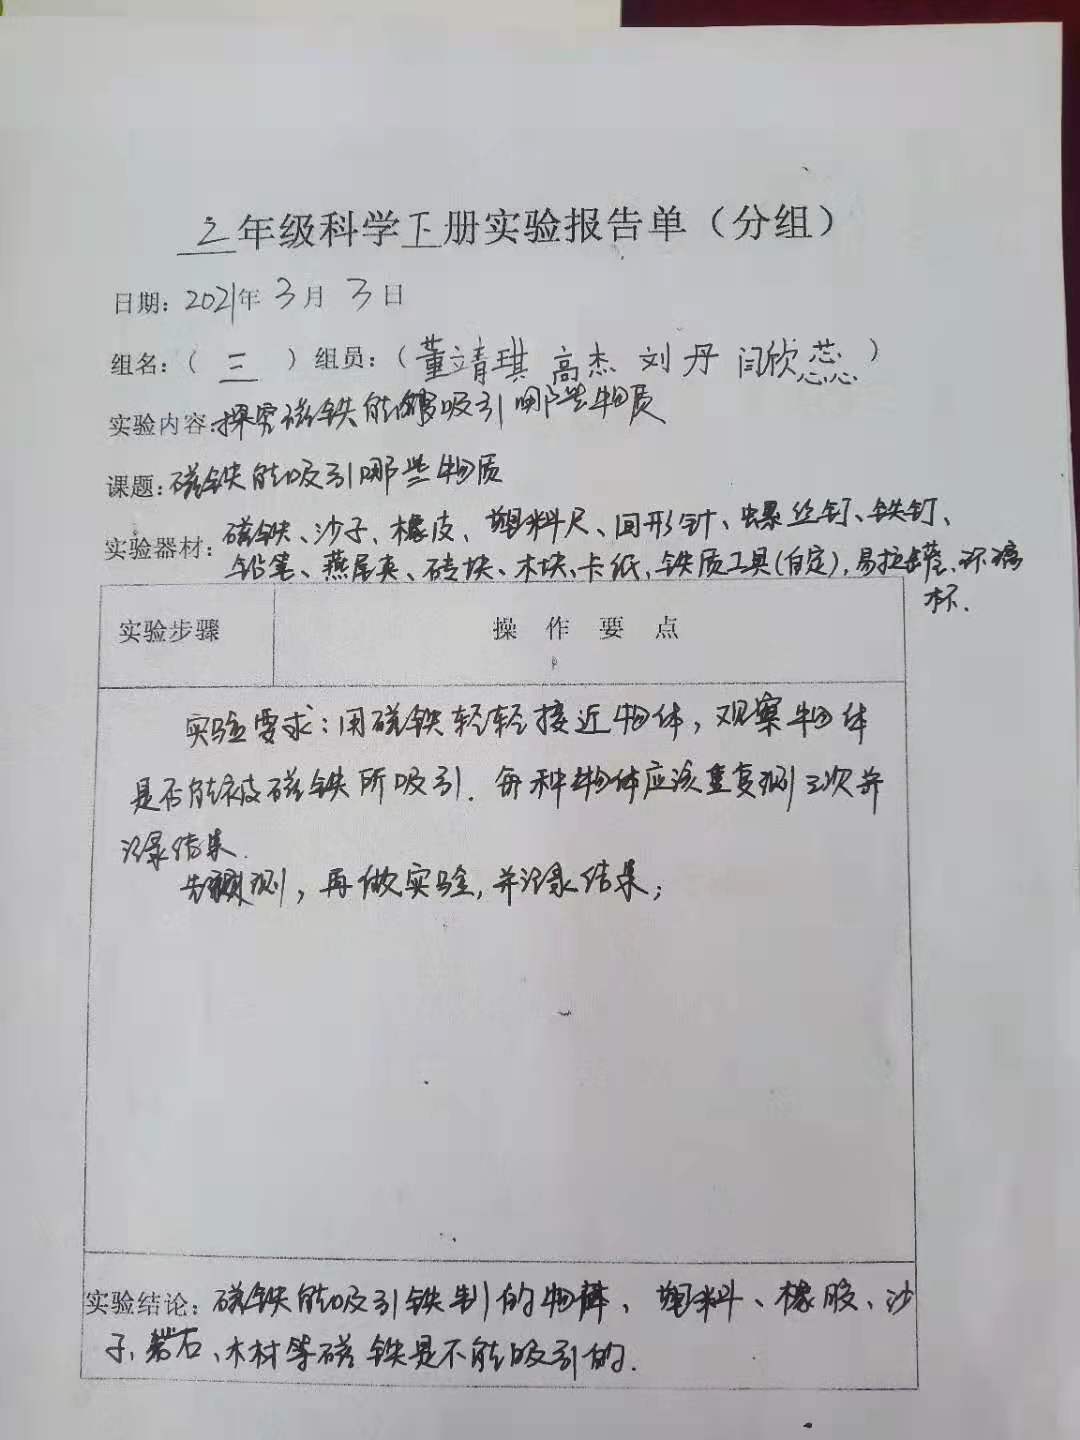 之年级科学下册实验报告单（分组）
日期：2021年3月3日
组名：（三）组员：（董靖琪 高杰 刘丹 闫欣蕊）
实验内容：探究磁铁能够吸引哪些物质
课题：磁铁能吸引哪些物质
实验器材：磁铁、沙子、橡皮、塑料尺、回形针、螺丝钉、铁钉、
铅笔、燕尾夹、砖块、木块、卡纸、铁质工具(自定)，易拉罐、玻璃
杯.
实验步骤 操作要点
实验要求：用磁铁轻轻接近物体，观察物体
是否能被磁铁所吸引．每种物体应该重复测三次并
记录结果.
先预测，再做实验，并记录结果；
实验结论：磁铁能吸引铁制的物体、塑料、橡胶、沙
子、岩石、木材等磁铁是不能吸引的.